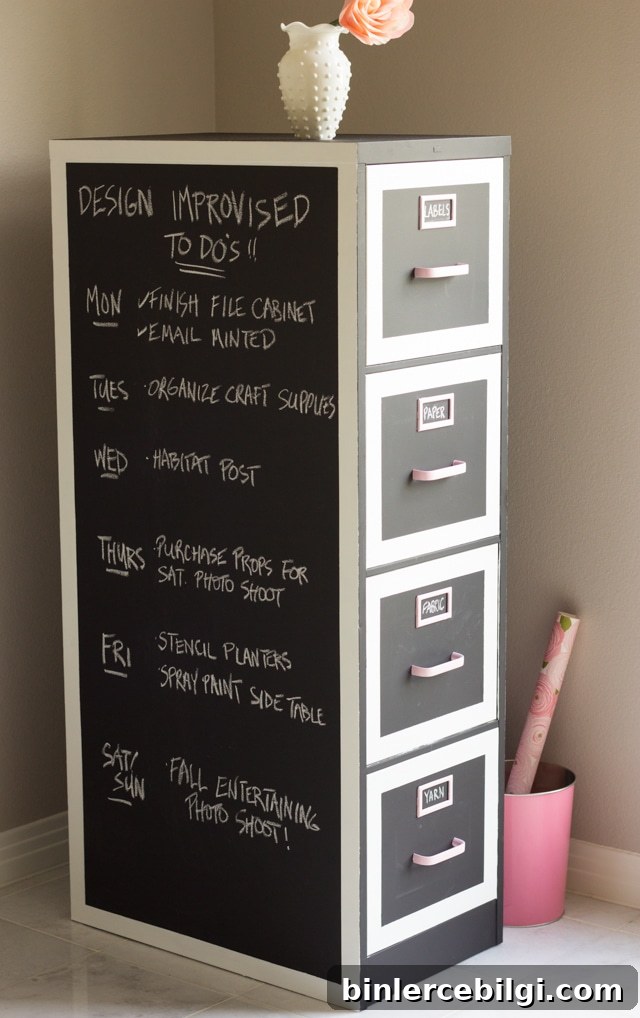 DESIGN IMPROVISED
TO DO'S!!
MON ✓FINISH FILE CABINET
✓EMAIL MINTED
TUES ·ORGANIZE CRAFT SUPPLIES
WED ·HABITAT POST
THURS ·PURCHASE PROPS FOR
SAT. PHOTO SHOOT
FRI ·STENCIL PLANTERS
·SPRAY PAINT SIDE TABLE
SAT/
SUN ·FALL ENTERTAINING
PHOTO SHOOT!
LABELS
PAPER
FABRIC
YARN
binlercebilgi.com